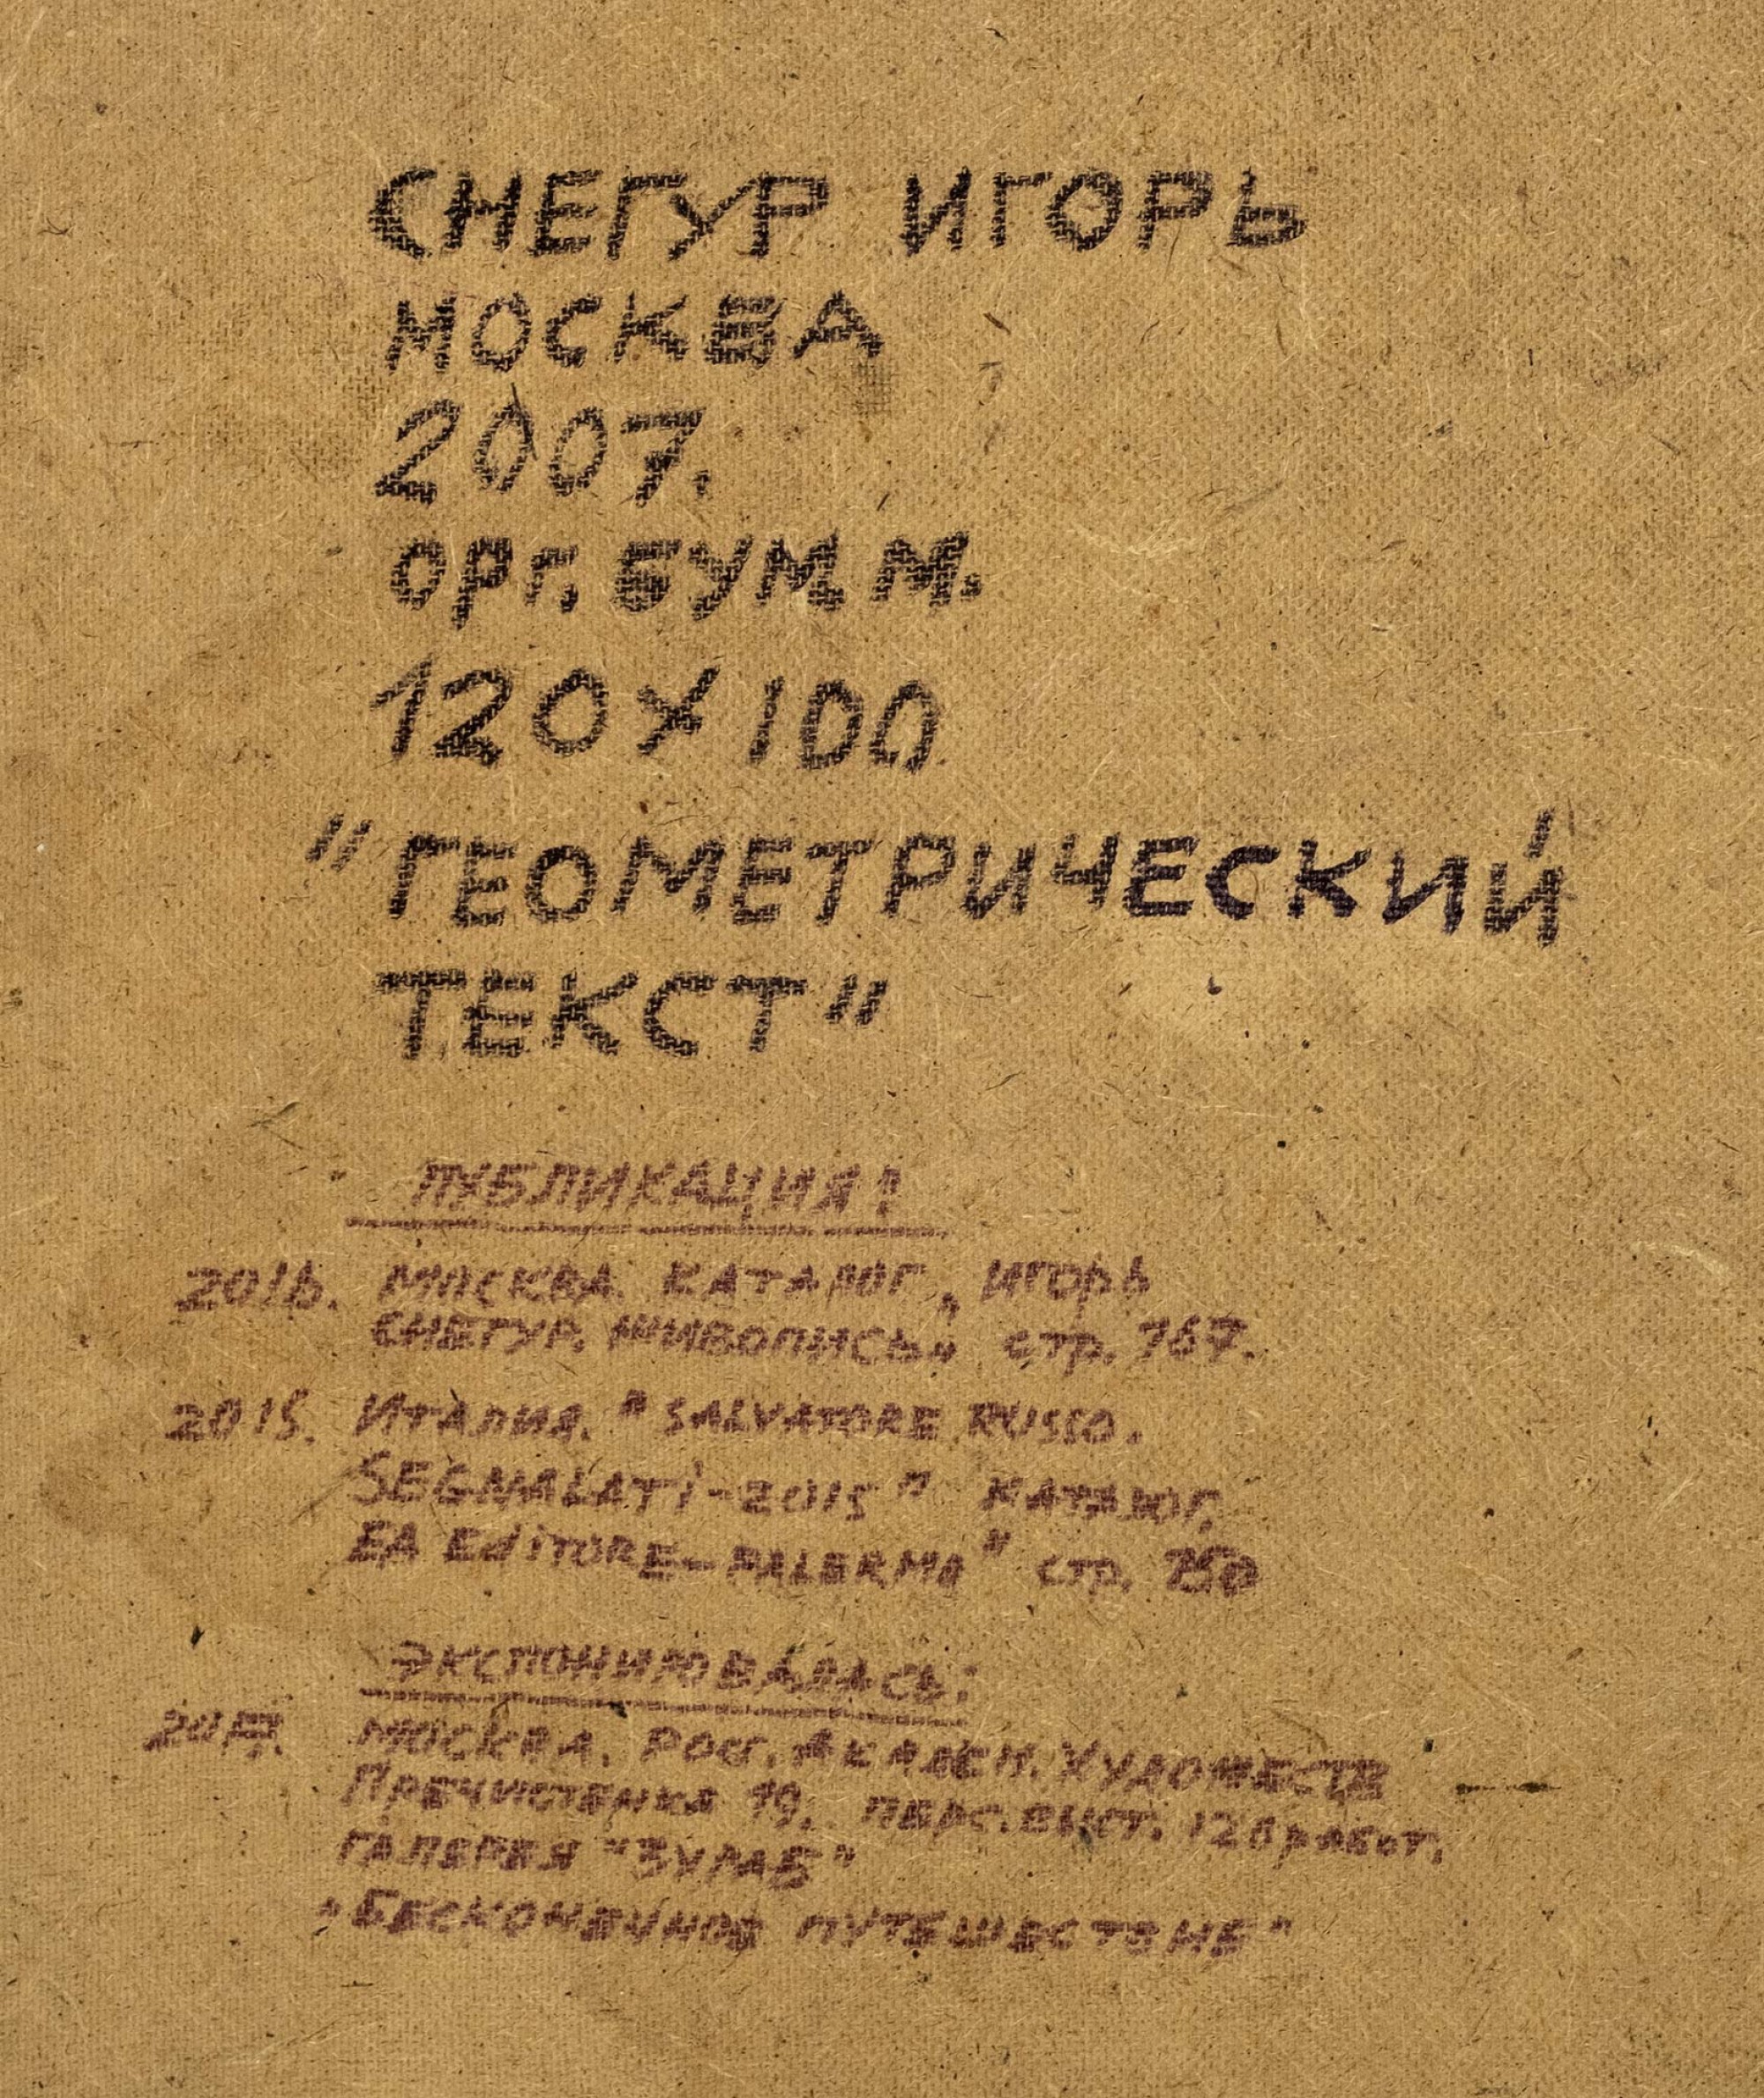 СНЕГУР ИГОРЬ
МОСКВА
2007.
ОРГ. БУМ. М.
120 X 100
"ГЕОМЕТРИЧЕСКИЙ
ТЕКСТ"
ПУБЛИКАЦИЯ!
2016. МОСКВА. КАТАЛОГ „ИГОРЬ
СНЕГУР. ЖИВОПИСЬ„ стр. 167.
2015. ИТАЛИЯ. "SALVATORE RUSSO.
SEGNALATI-2015" КАТАЛОГ,
EA EDITORE-PALERMO" стр.
ЭКСПОНИРОВАЛАСЬ:
МОСКВА. РОСС. АКАДЕМ. ХУДОЖЕСТВ
ПРЕЧИСТЕНКА 19, ПЕРС. ВЫСТ. 120 РАБОТ,
ГАЛЕРЕЯ "ЗУРАБ"
"БЕСКОНЕЧНОЕ ПУТЕШЕСТВИЕ"